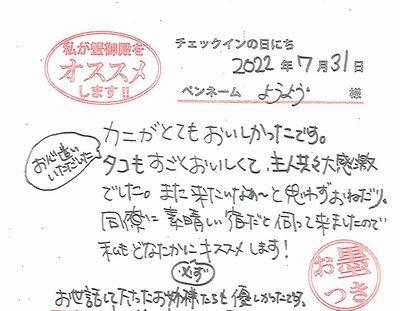 私が蟹御殿を
オススメ
します!!
チェックインの日にち
2022年7月31日
ペンネーム ようよう 様
カニがとてもおいしかったです。
お心遣い
いただきました
タコもすごくおいしくて、主人共々大感激
でした。また来たいなぁ〜と思わずおねだり。
同僚に素晴しい宿だと伺って来ましたので
私もどなたかにオススメします!
必ず
お世話して下さったお姉様たちも優しかったです。
お墨
つき